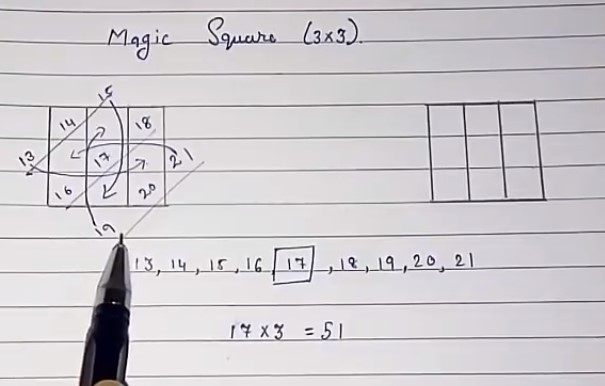 Magic Square (3x3).
15
14 18
13 17 21
16 20
19
13, 14, 15, 16 17 , 18, 19, 20, 21
17 x 3 = 51